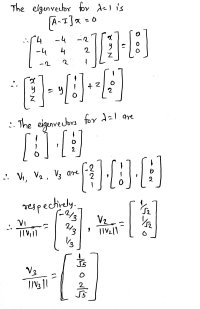 The eigenvector for λ=1 is
[A-I]x = 0
∴ [4 -4 -2; -4 4 2; -2 2 1] [x; y; z] = [0; 0; 0]
∴ [x; y; z] = y [1; 1; 0] + z [1; 0; 2]
∴ The eigenvectors for λ=1 are
[1; 1; 0] , [1; 0; 2]
∴ V1, V2, V3 are [-2; 2; 1], [1; 1; 0], [1; 0; 2]
respectively.
∴ V1/||V1|| = [-2/3; 2/3; 1/3] , V2/||V2|| = [1/√2; 1/√2; 0]
V3/||V3|| = [1/√5; 0; 2/√5]